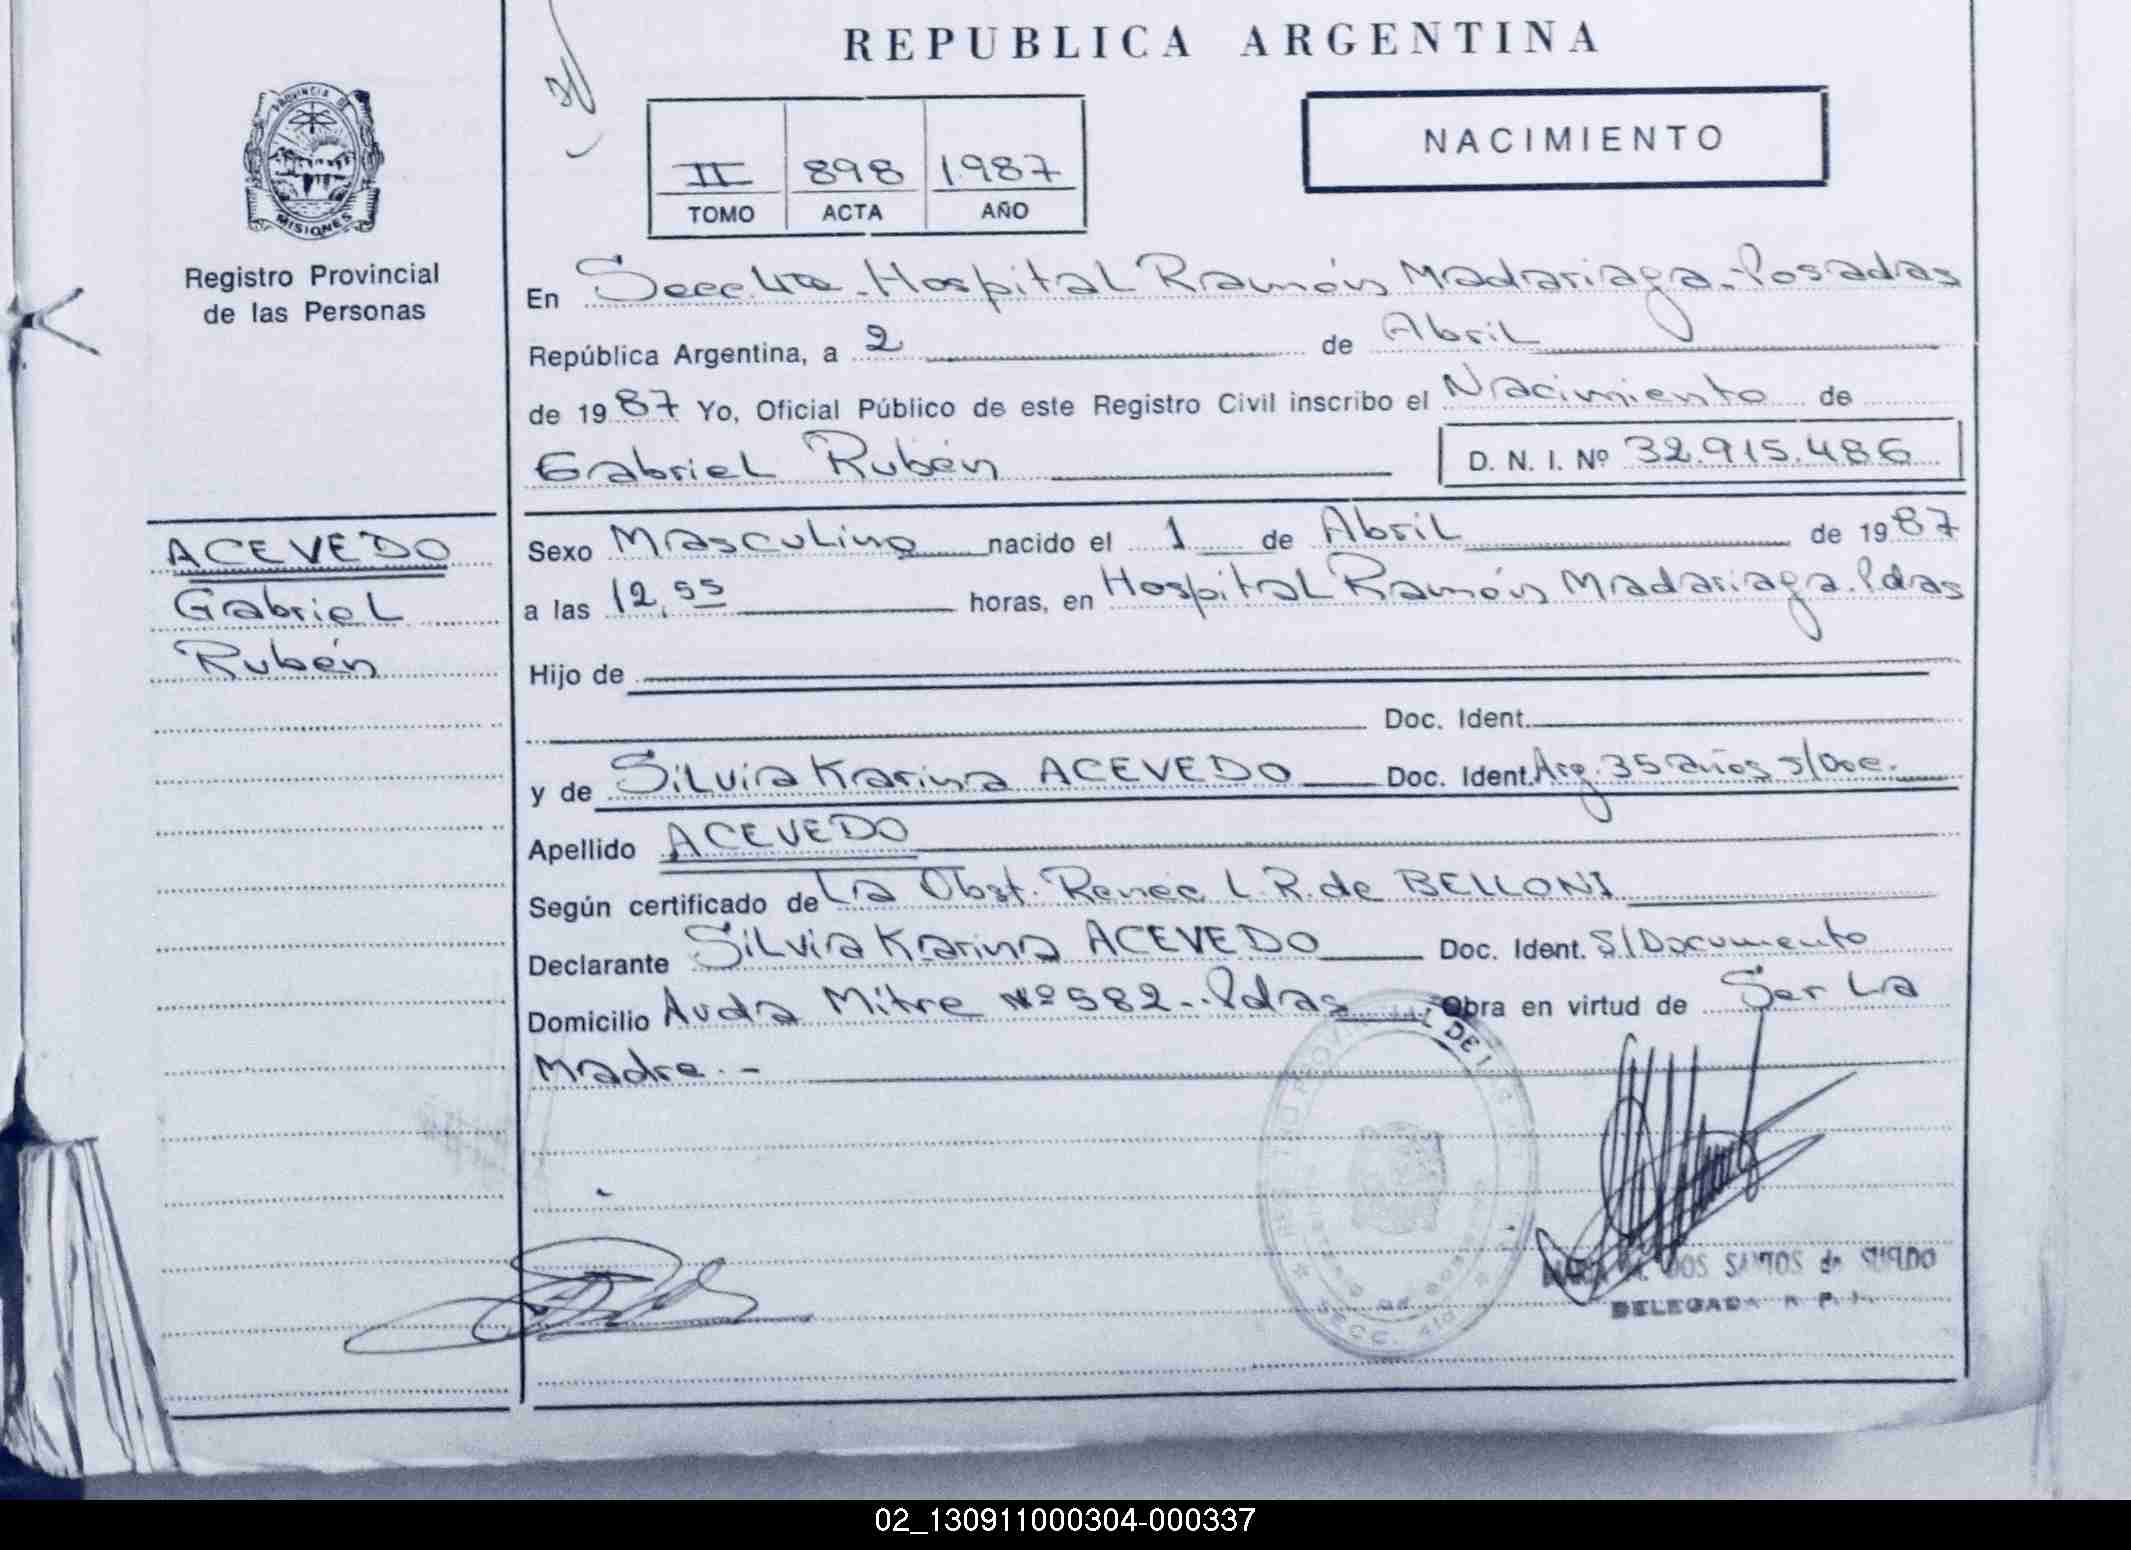 REPUBLICA ARGENTINA
PROVINCIA DE
MISIONES
Registro Provincial
de las Personas
II 898 1987
TOMO ACTA AÑO
NACIMIENTO
En Secc 4ta - Hospital Ramón Madariaga.- Posadas
República Argentina, a 2 de Abril
de 1987 Yo, Oficial Público de este Registro Civil inscribo el Nacimiento de
Gabriel Rubén D. N. I. Nº 32.915.486
ACEVEDO
Gabriel
Rubén
Sexo Masculino nacido el 1 de Abril de 1987
a las 12,55 horas, en Hospital Ramón Madariaga. Pdas
Hijo de
Doc. Ident.
y de Silvia Karina ACEVEDO Doc. Ident. Arg. 35 años s/Doc.
Apellido ACEVEDO
Según certificado de La Obst. Renee L. R. de BELLONI
Declarante Silvia Karina ACEVEDO Doc. Ident. S/Documento
Domicilio Avda Mitre Nº 582 -. Pdas Obra en virtud de Ser La
Madre. -
DOS SANTOS de
DELEGADA R. P.
02_130911000304-000337